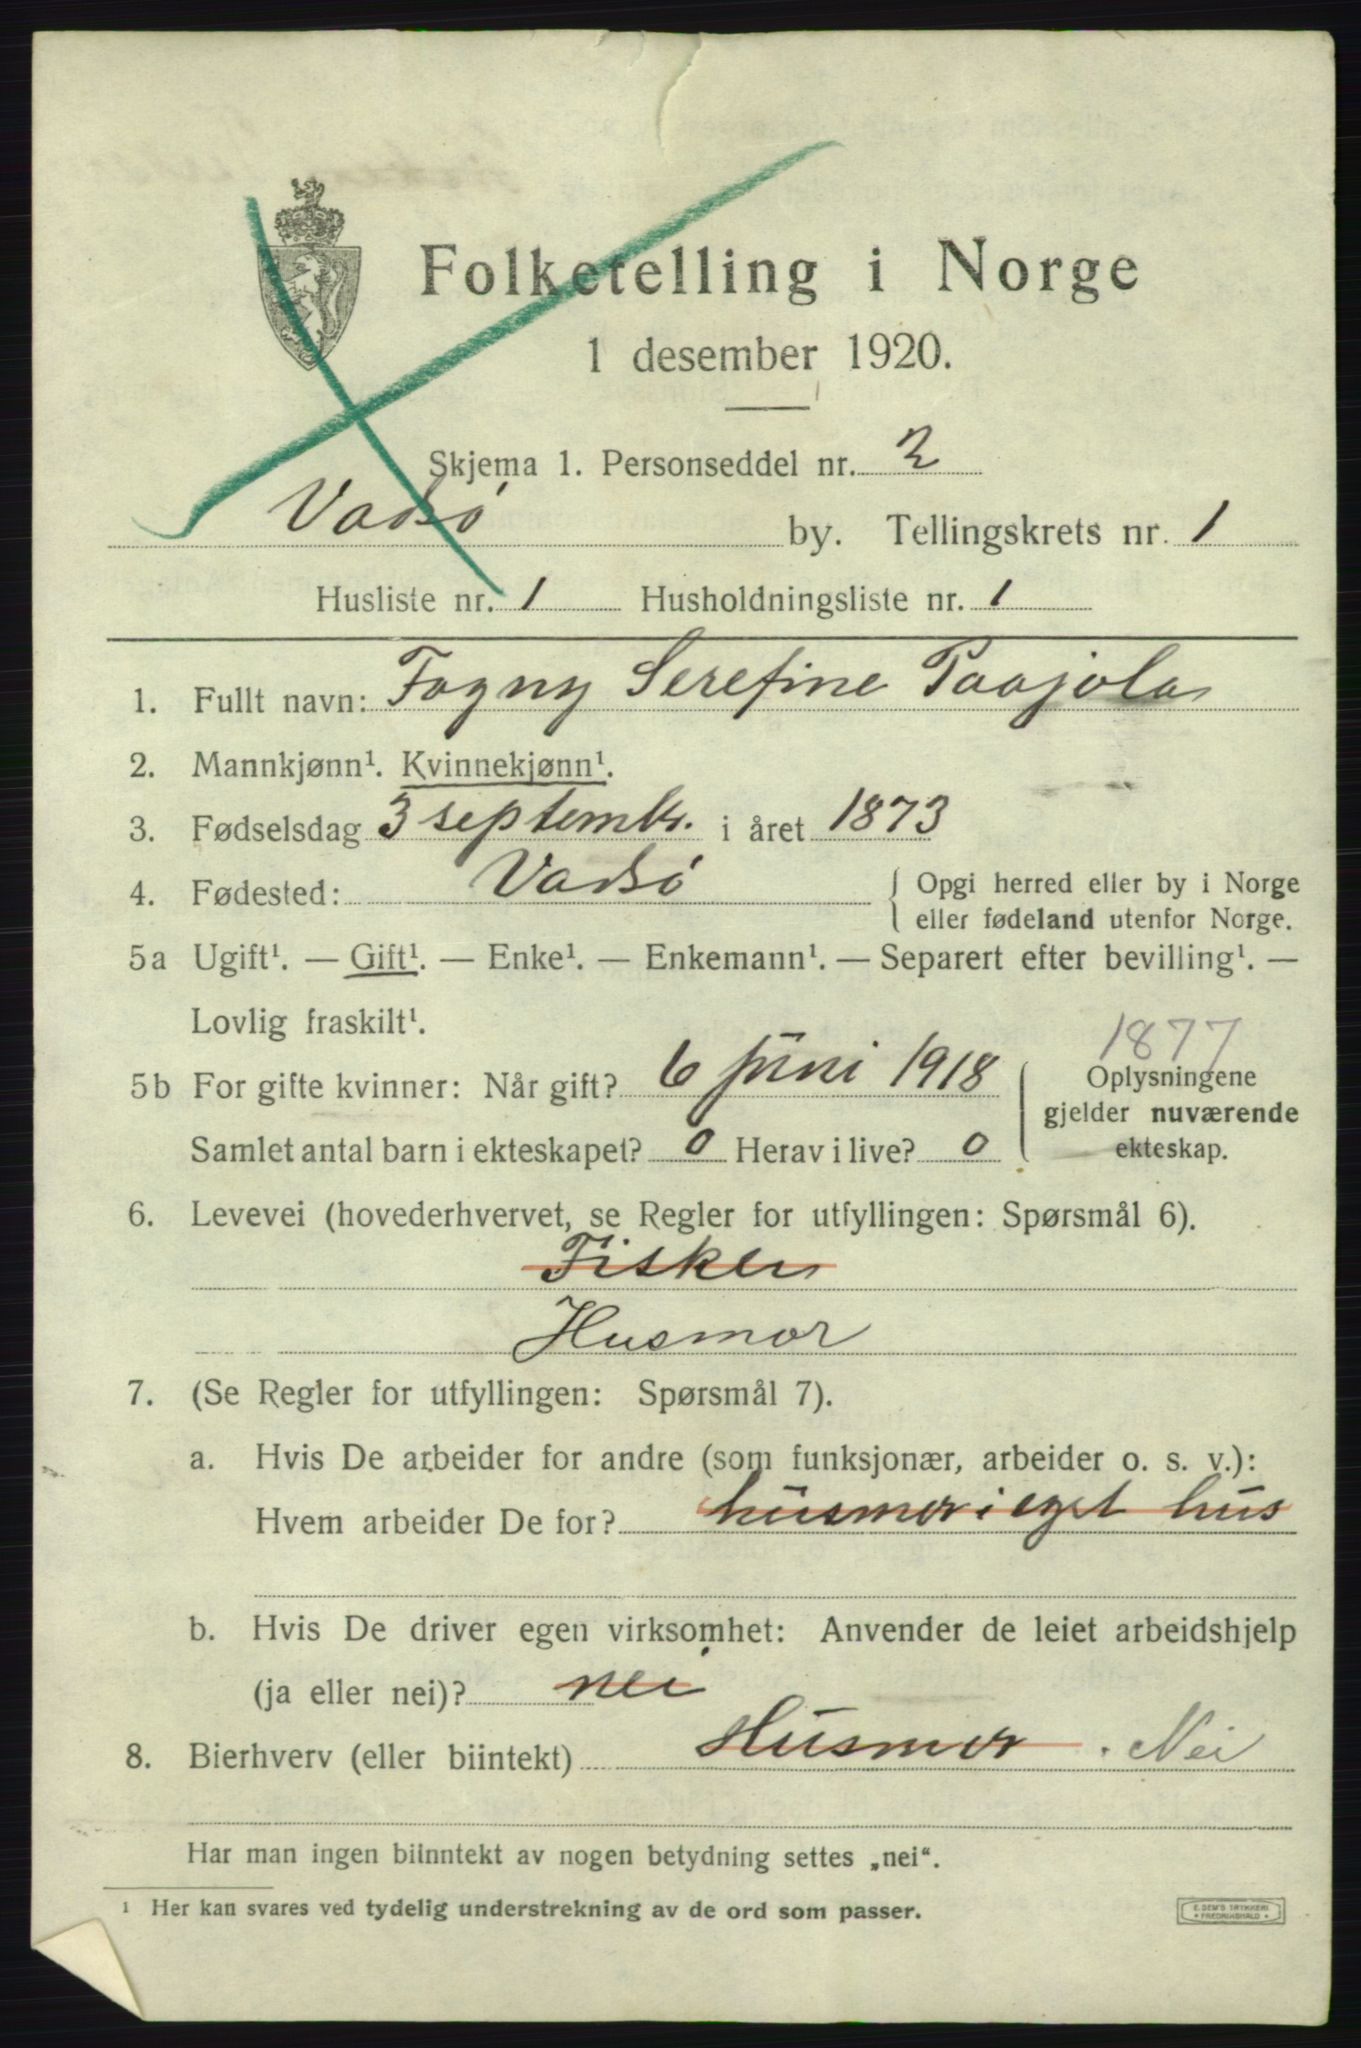 Folketelling i Norge
1 desember 1920.
Skjema 1. Personseddel nr. 2
Vadsø by. Tellingskrets nr. 1
Husliste nr. 1 Husholdningsliste nr. 1
1. Fullt navn: Fagny Serefine Paajola
2. Mannkjønn¹. Kvinnekjønn¹.
3. Fødselsdag 3 septembr. i året 1873
4. Fødested: Vadsø { Opgi herred eller by i Norge
eller fødeland utenfor Norge.
5a Ugift¹. — Gift¹. — Enke¹. — Enkemann¹. — Separert efter bevilling¹. —
Lovlig fraskilt¹.
1877
5b For gifte kvinner: Når gift? 6 juni 1918 { Oplysningene
gjelder nuværende
Samlet antal barn i ekteskapet? 0 Herav i live? 0 ekteskap.
6. Levevei (hovederhvervet, se Regler for utfyllingen: Spørsmål 6).
Fisker
Husmor
7. (Se Regler for utfyllingen: Spørsmål 7).
a. Hvis De arbeider for andre (som funksjonær, arbeider o. s. v.):
Hvem arbeider De for? husmor i eget hus
b. Hvis De driver egen virksomhet: Anvender de leiet arbeidshjelp
(ja eller nei)? nei
8. Bierhverv (eller biintekt) Husmor . Nei
Har man ingen biinntekt av nogen betydning settes „nei“.
¹ Her kan svares ved tydelig understrekning av de ord som passer.
E. SEM'S TRYKKERI
• FREDRIKSHALD •